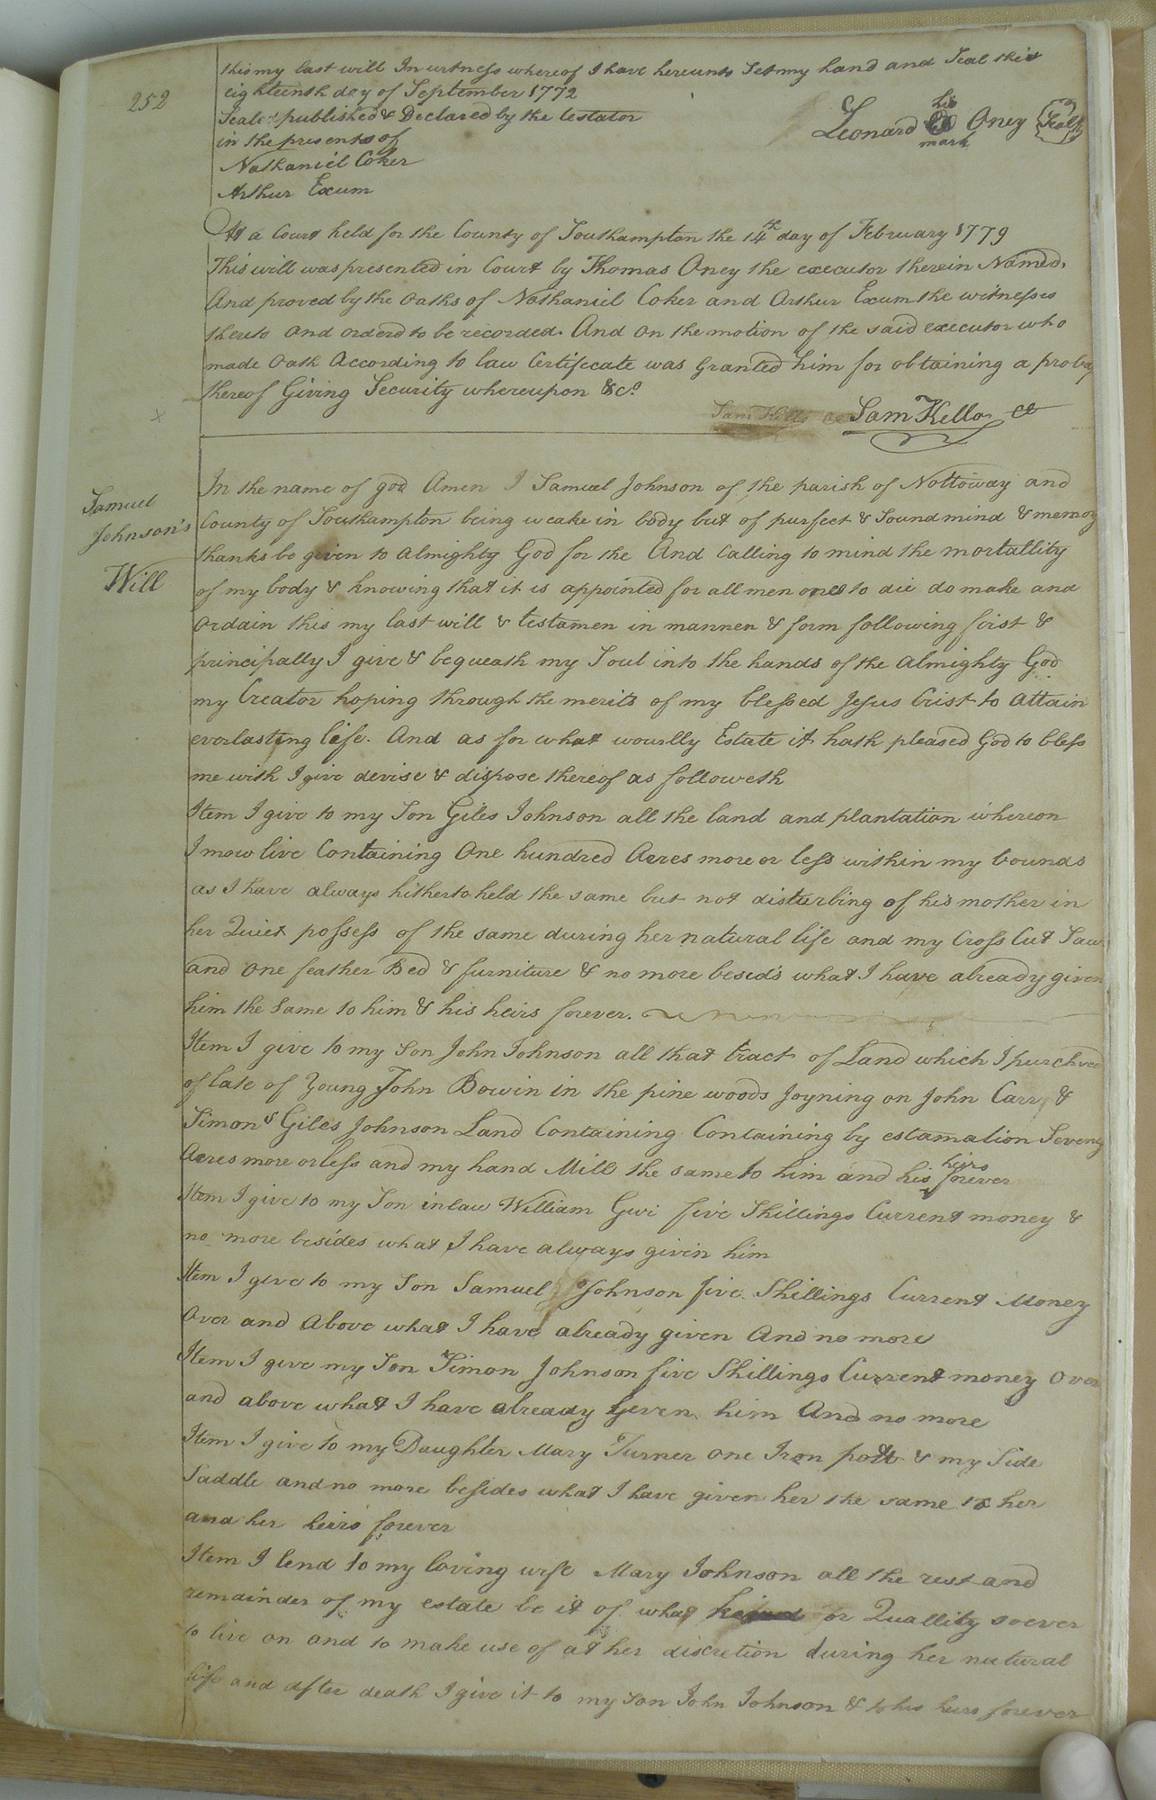 252
this my last will In witness whereof I have hereunto Set my hand and Seal this
eighteenth day of September 1772
Seale'd published & Declared by the testator
in the presents of
Nathaniel Coker
Arthur Exum
his
Leonard Oney Seal
mark
At a Court held for the County of Southampton the 14th day of February 1779
This will was presented in Court by Thomas Oney the executor therein Named.
And proved by the oaths of Nathaniel Coker and Arthur Exum the witnesses
thereto and orderd to be recorded. And on the motion of the said executor who
made oath According to law Certificate was Granted him for obtaining a probat
thereof Giving Security whereupon &c.
Sam Kello Sam Kello Cl
Samuel
Johnson's
Will
In the name of god Amen I Samuel Johnson of the parish of Nottoway and
County of Southampton being weake in body but of purfect & Sound mind & memory
thanks be given to almighty God for the And Calling to mind the mortallity
of my body & knowing that it is appointed for all men ones to die do make and
ordain this my last will & testamen in mannen & form following first &
principally I give & bequeath my Soul into the hands of the almighty God
my Creator hoping through the merits of my blessed Jesus Crist to attain
everlasting life. And as for what wourlly Estate it hath pleased God to bless
me with I give devise & dispose thereof as followeth
Item I give to my Son Giles Johnson all the land and plantation whereon
I mow live Containing One hundred Acres more or less within my bounds
as I have always hitherto held the same but not disturbing of his mother in
her Quiet possess of the same during her natural life and my Cross Cut Saw
and one feather Bed & furniture & no more besid's what I have already given
him the same to him & his heirs forever.
Item I give to my Son John Johnson all that tract of Land which I purchsed
of late of Young John Bowin in the pine woods Joyning on John Carr &
Simon & Giles Johnson Land Containing Containing by estamation Seventy
Acres more or less and my hand Mill the same to him and his heirs forever
Item I give to my Son inlaw William Gwi five Shillings Current money &
no more besides what I have always given him
Item I give to my Son Samuel Johnson five Shillings Current Money
Over and Above what I have already given And no more
Item I give my Son Simon Johnson five Shillings Current money Over
and above what I have already Geven him And no more
Item I give to my Daughter Mary Turner one Iron pott & my Side
Saddle and no more besides what I have given her the same to her
and her heirs forever
Item I lend to my loving wife Mary Johnson all the rest and
remainder of my estate be it of what or Quallity soever
to live on and to make use of at her discretion during her natural
life and after death I give it to my Son John Johnson & to his heirs forever